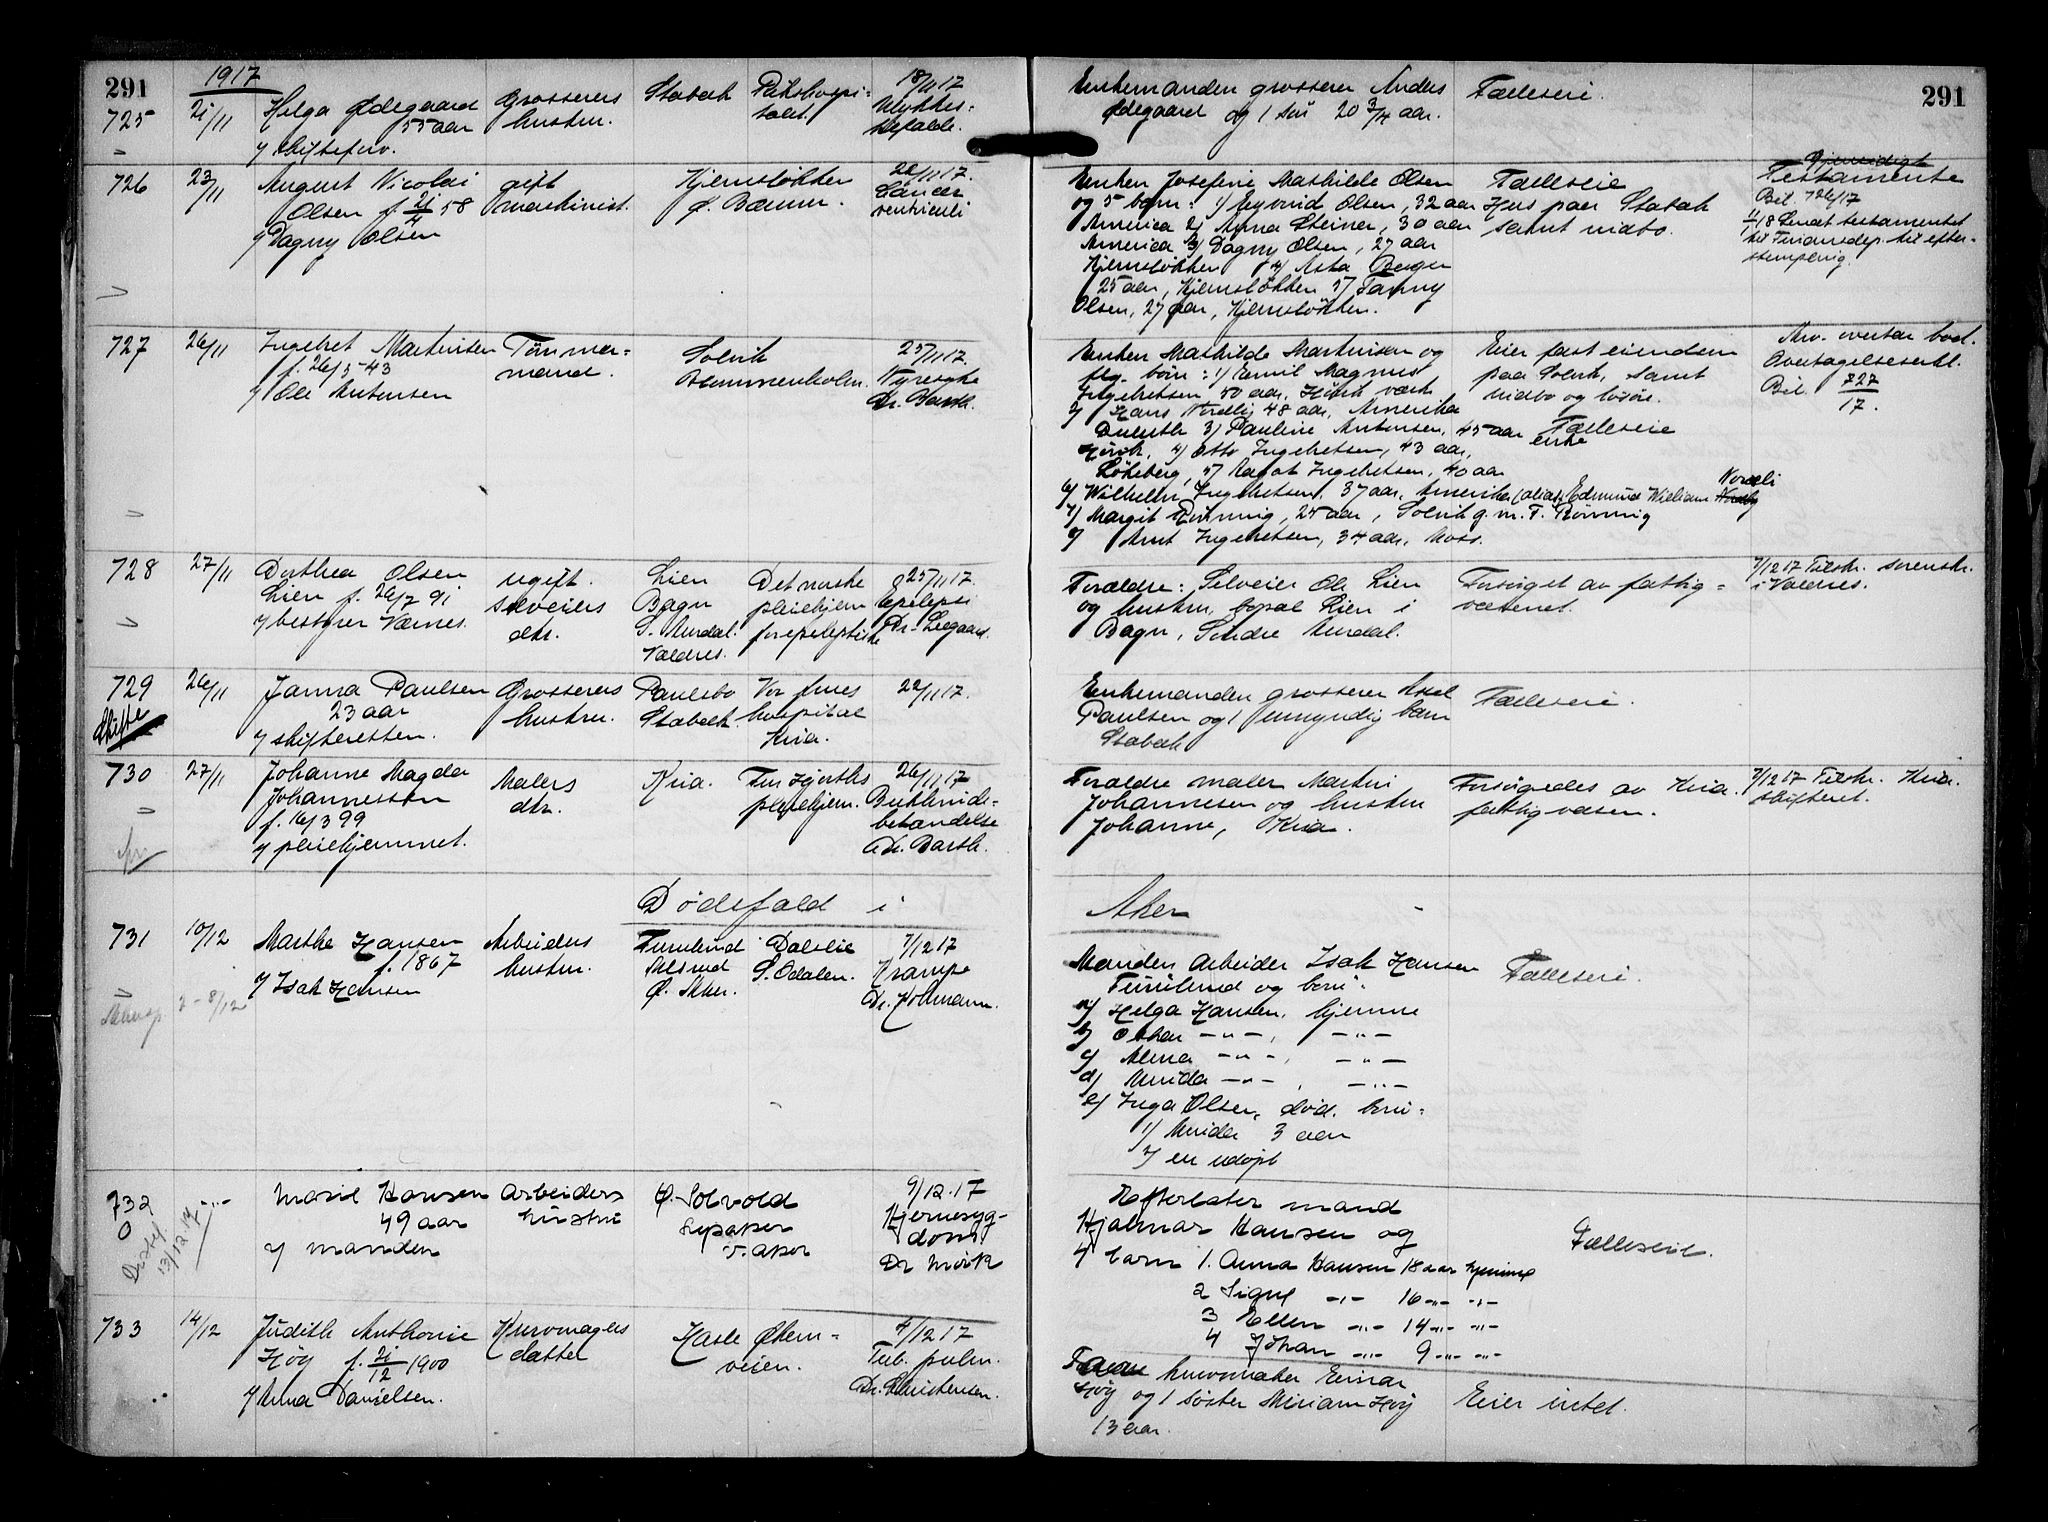 291
1917
725 21/11 Helga Ødegaard Grosserers Stabæk Rikshospi- 18/11 17
55 aar hustru. talet. Ulykkes-
v/ skifteforv. tilfælde.
Enkemanden grosserer Anders Fælleseie.
Ødegaard og 1 søn 20 3/4 aar.
291
726 23/11 August Nicolai gift Hjemsløkken 22/11 17.
Olsen f. 21/4 58 maskinist. Ø. Bærum. Cancer
v/ Dagny Olsen ventriculi
Enken Josefine Mathilde Olsen Fælleseie
og 5 barn: 1/ Eyvind Olsen, 32 aar Hus paa Stabæk
America 2/ Anna Steiner, 30 aar samt indbo.
America 3/ Dagny Olsen, 27 aar
Hjemsløkken 4/ Asta Berger
25 aar, Hjemsløkken 5/ Fanny
Olsen, 27 aar, Hjemsløkken.
Gjensidigt
Testamente
Bil. 726/17
1/18 Sendt testamentet
til Finansdep. til efter-
stempling.
727 26/11 Ingebret Martinsen Tømmer- Solvik 25/11 17.
f. 26/5-43 mand. Blommenholm. Nyresyke
v/ Ole Antonsen Dr. Barth.
Enken Mathilde Martinsen og Eier fast eiendom
flg. børn: 1/ Emil Magnus paa Solvik, samt
Ingebretsen 50 aar, Høvik værk indbo og løsøre.
2/ Hans Nordli 48 aar, Amerika
Duluth 3/ Pauline Antonsen, 45 aar Fælleseie
Høvik, 4/ Otto Ingebretsen, 43 aar, enke
Løkeberg, 5/ Ragot Ingebretsen, 40 aar
6/ Wilhelm Ingebretsen, 37 aar, Amerika (alias Edmund William Nordli
7/ Margit Rønning, 25 aar, Solvik g. m. T. Rønning
8/ Arnt Ingebretsen, 34 aar, Moss.
Arv. overtar boet.
Overtagelseserkl.
Bil. 727
17.
728 27/11 Dorthea Olsen ugift. Lien Det norske 25/11 17.
Lien f. 26/7 91 selveiers Bagn pleiehjem Epilepsi
v/ bestyrer Værnes. dtr. S. Aurdal. for epileptiske Dr. Seegaard.
Valdres.
Forældre: Selveier Ole Lien Forsørget av fattig-
og hustru, bopæl Lien i væsenet.
Bagn, Søndre Aurdal.
7/12 17 Tilskr. sorenskr.
i Valdres.
729 26/11 Janna Paulsen Grosserers Paulsbo Vor Frues 22/11 17.
Skifte 23 aar hustru. Stabæk. hospital
v/ skifteretten. Kria.
Enkemanden grosserer Axel Fælleseie.
Paulsen og 1 umyndig barn
Stabæk
730 27/11 Johanne Magda Malers Kria. Fru Hjorths 26/11 17
Johannessen dtr. pleiehjem. Bukhinde-
f. 16/3 99 betændelse
v/ pleiehjemmet. Dr. Barth.
Forældre maler Martin Forsørgedes av Kria. 7/12 17 Tilskr. Kria.
Johannesen og hustru fattigvæsen. skifteret.
Johanne, Kria.
Dødsfald i Aker
731 10/12 Marthe Hansen Arbeiders Furulund Dalseie 7/12 17
f. 1867 hustru. Ulsrud S. Odalen. Krampe
v/ Isak Hansen Ø. Aker. Dr. Kolmann.
2-8/12
Manden arbeider Isak Hansen Fælleseie.
Furulund og børn:
a/ Helga Hansen, hjemme
b/ Othar -"-, -"-
c/ Alma -"-, -"-
d/ Amida -"-, -"-
e/ Inga Olsen, død. børn:
1/ Amida 3 aar
2/ en udøpt
732 -"- Marie Hansen arbeiders Ø. Solvold 9/12.17
0 49 aar hustru Hjernesyg-
v/ manden V. Aker dom
Dr Mørk
13/12 17
Efterlater mand
Hjalmar Hansen og Fælleseie.
4 barn 1. Anna Hansen 18 aar hjemme
2 Signe -"- 16 -"- -"-
3 Ellen -"- 14 -"- -"-
4 Johan -"- 9 -"- -"-
733 14/12 Judith Anthonie Kurvmagers Hasle Økern- 4/12 17
Høy f. 21/12 1900 datter veien. Tub. pulm.
v/ Anna Danielsen. Dr. Christensen.
Faren kurvmaker Einar
Høy og 1 søster Miriam Høy Eier intet.
13 aar.